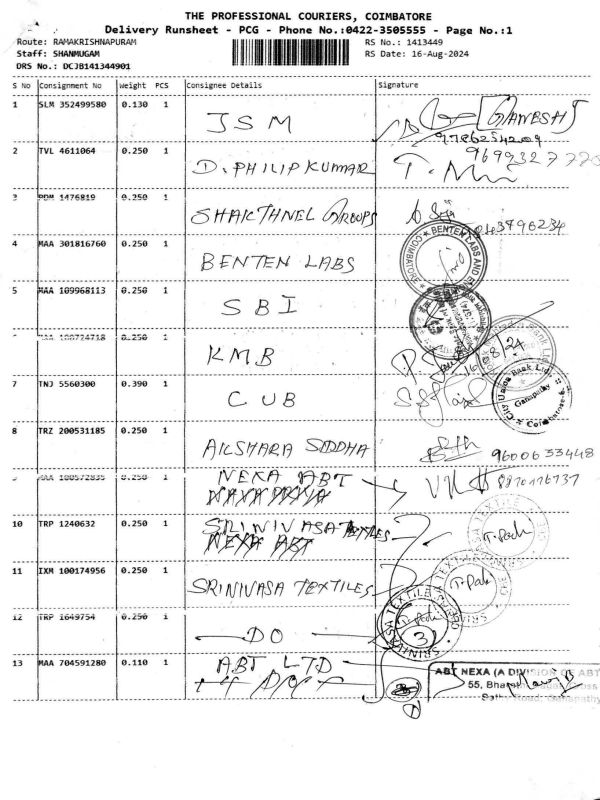 THE PROFESSIONAL COURIERS, COIMBATORE
Delivery Runsheet - PCG - Phone No.:0422-3505555 - Page No.:1
Route: RAMAKRISHNAPURAM
RS No.: 1413449
Staff: SHANMUGAM
RS Date: 16-Aug-2024
DRS No.: DCJB141344901
S No Consignment No Weight PCS Consignee Details Signature
1 SLM 352499580 0.130 1 JSM GANESH
2 TVL 4611064 0.250 1 D. PHILIP KUMAR
3 1476819 0.250 1 SHAKTHNEL GROUPS
4 MAA 301816760 0.250 1 BENTEN LABS
COIMBATORE ★ BENTEN LABS AND
5 MAA 109968113 0.250 1 SBI
100724718 0.250 1 KMB
16/8/24
7 TNJ 5560300 0.390 1 CUB
City Union Bank Ltd.
Ganapathy
★ Coimbatore
8 TRZ 200531185 0.250 1 AKSHARA SIDDHA 9600633448
9 MAA 100572835 0.250 1 NEXA ABT
10 TRP 1240632 0.250 1 SRINIVASA TEXTILES
NEXA ABT
11 IXM 100174956 0.250 1 SRINIVASA TEXTILES
12 TRP 1649754 0.250 1 DO
SRINIVASA TEXTILE
13 MAA 704591280 0.110 1 ABT LTD
ABT NEXA (A DIVISION OF ABT
55, Bharathi Nagar
Sathy Road, Ganapathy